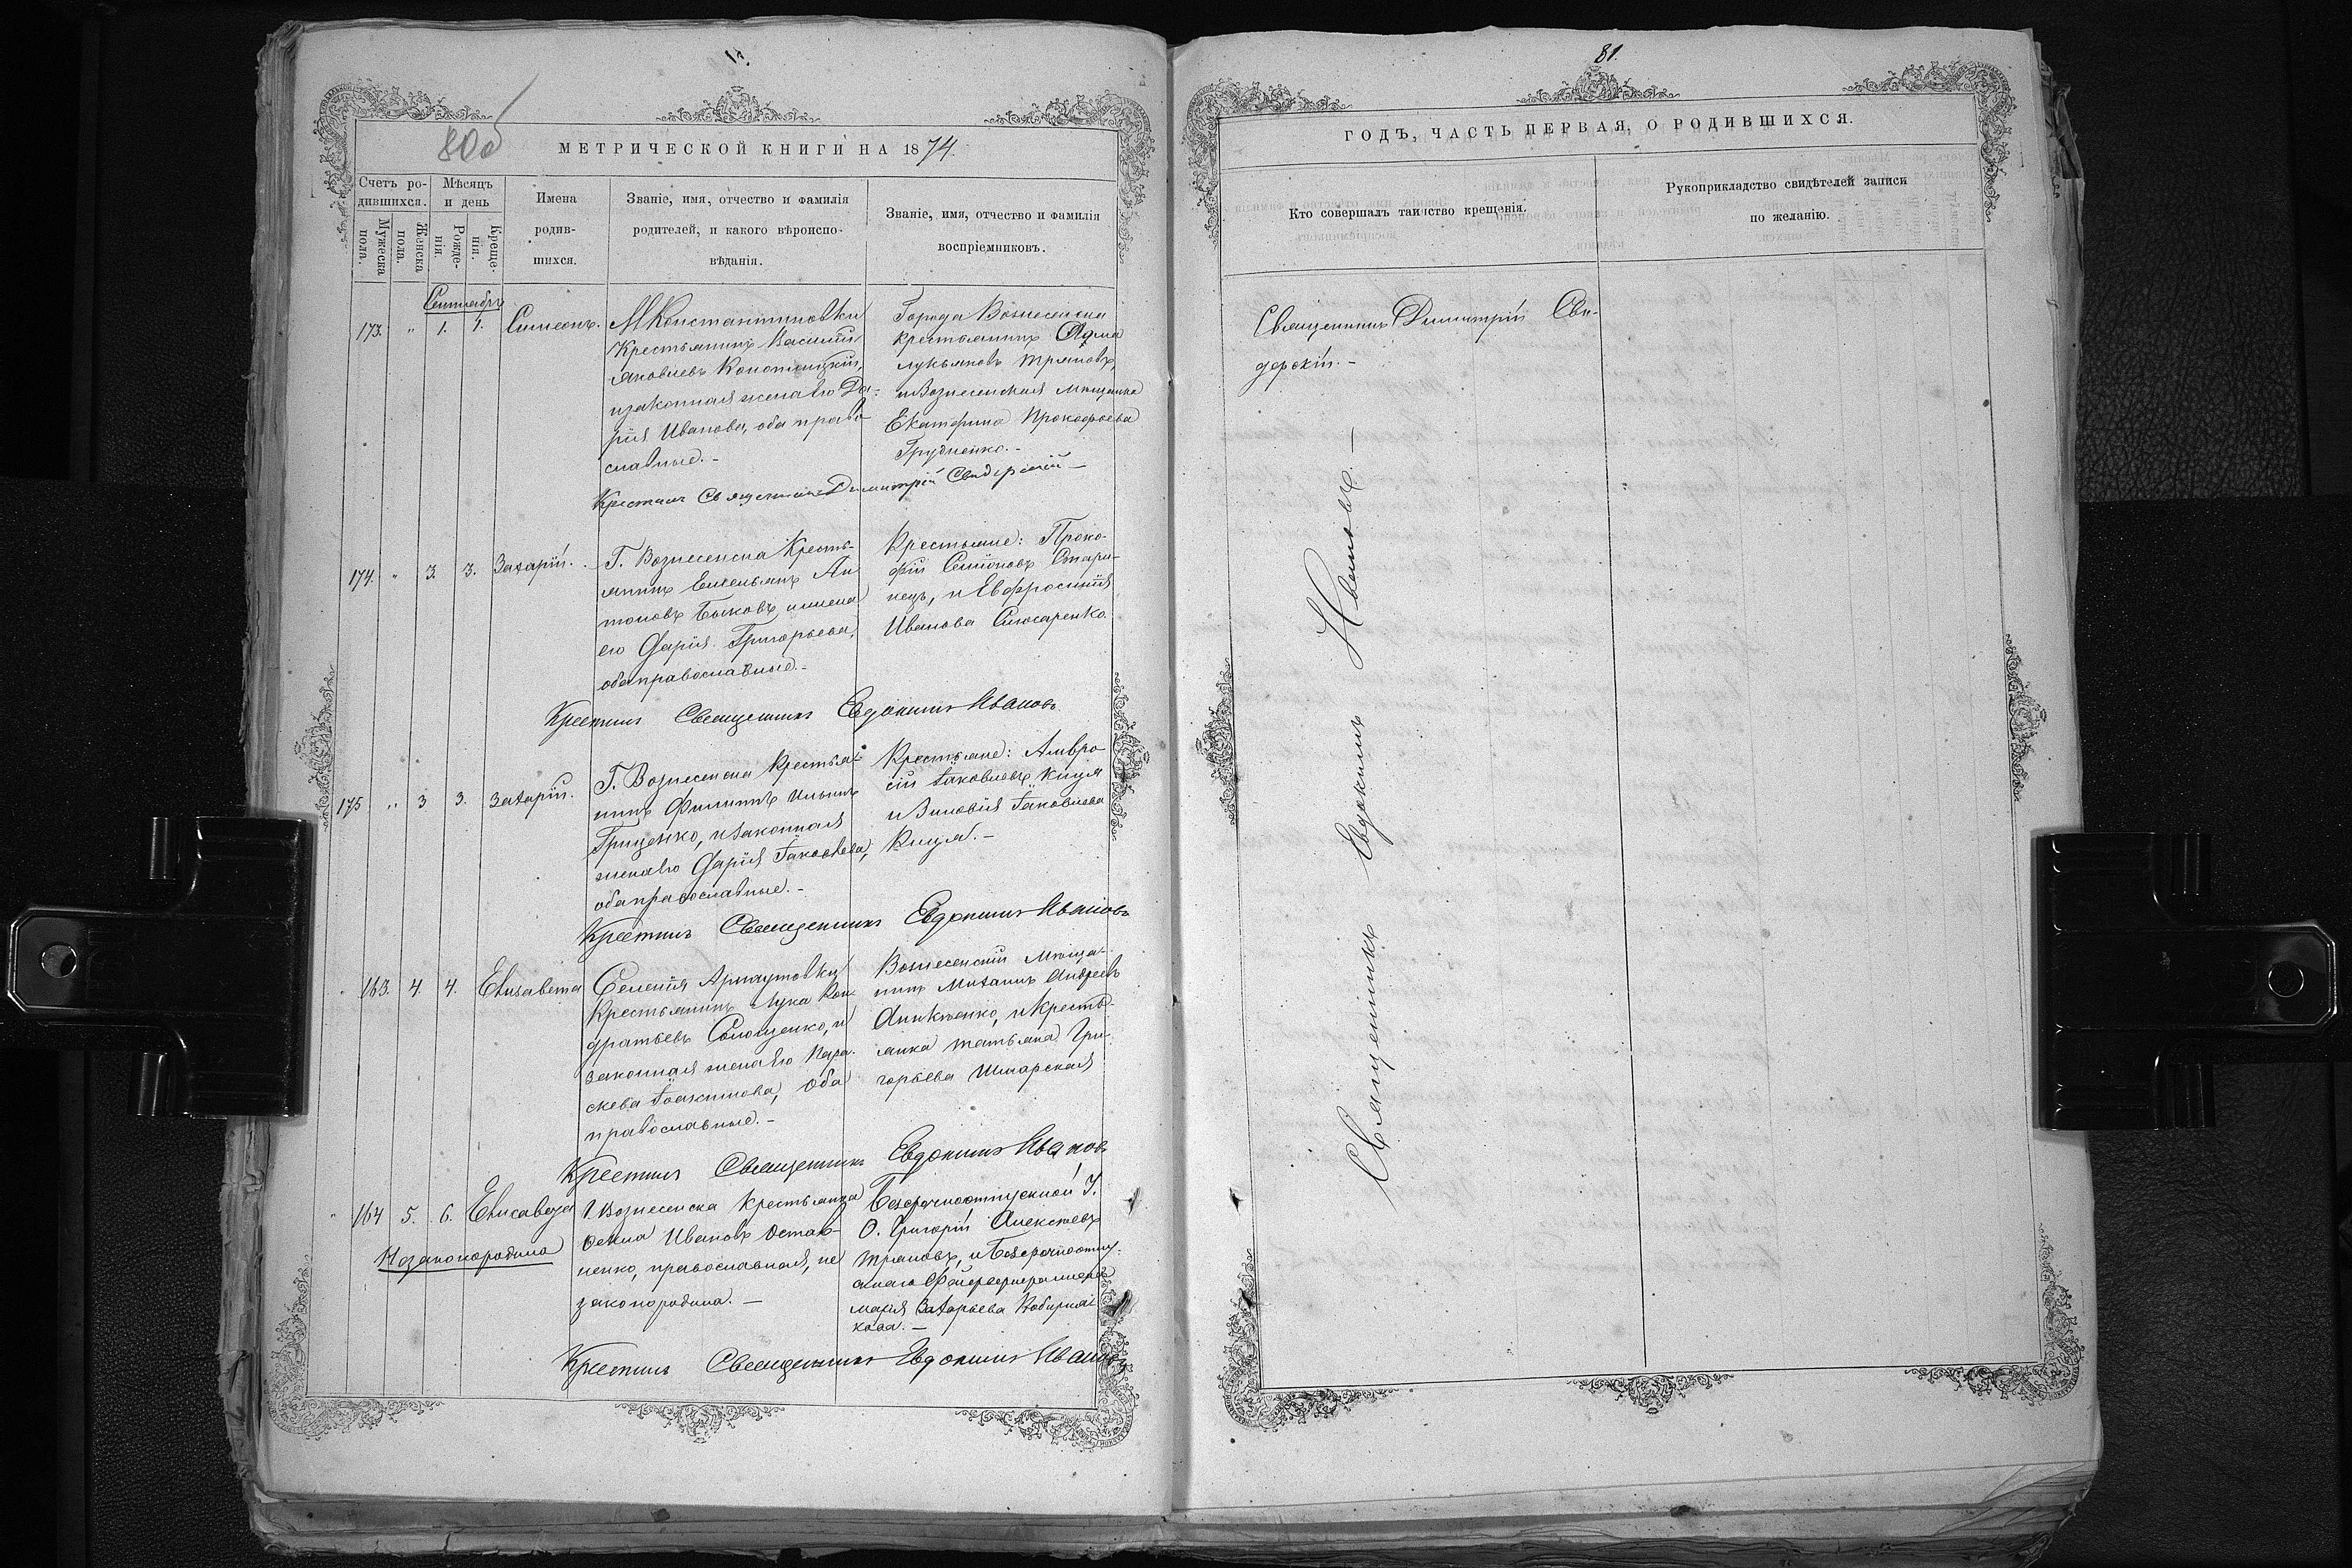 81.
80 об
МЕТРИЧЕСКОЙ КНИГИ НА 1874.
Счетъ ро-
дившихся.
Мужеска
пола.
Женска
пола.
Мѣсяцъ
и день
Рожде-
нія.
Креще-
нія.
Имена
родив-
шихся.
Званіе, имя, отчество и фамилія
родителей, и какого вѣроиспо-
вѣданія.
Званіе, имя, отчество и фамилія
воспріемниковъ.
Сентябрь
173. " 1. 1. Симеонъ.
М. Константиновки
Крестьянинъ Василій
Яковлевъ
и законная жена его Да-
рія Иванова, оба право-
славные. -
Города Вознесенска
крестьянинъ
Лукьяновъ Трановъ,
и Вознесенская мѣщанка
Екатерина Прокофьева
Грудненко. -
Крестилъ Священникъ Димитрій Свидерскій -
174. " 3. 3. Захарій.
Г. Вознесенска Кресть-
янинъ Емельянъ Ан-
тоновъ Быковъ и жена
его Дарія Григорьева,
оба православные. -
Крестьяне: Проко-
фій Семіоновъ Стари-
нецъ, и Евфросинія
Иванова Слюсаренко.
Крестилъ Священникъ Евдокимъ Ивановъ
175 " 3 3. Захарій.
Г. Вознесенска Крестья-
нинъ Филиппъ Ильинъ
Гриценко, и законная
жена его Дарія Іаковлева,
оба православные. -
Крестьяне: Амвро-
сій Іаковлевъ Кицл
и Зиновія Іаковлева
Кицл. -
Крестилъ Священникъ Евдокимъ Ивановъ
" 163. 4. 4. Елисавета
Селенія Арнаутовки
Крестьянинъ Лука Кон-
дратьевъ Солощенко, и
законная жена его Пара-
скева Іоакимова, оба
православные. -
Вознесенскій мѣща-
нинъ Михаилъ Андреевъ
Аникѣенко, и Кресть-
янка Татьяна Гри-
горьева Шмарская
Крестилъ Священникъ Евдокимъ Ивановъ
" 164 5. 6. Елисавета
Незаконородна
Г. Вознесенска Крестьянка
Иванова Остап-
ненко, православная, не
законородна. -
Безсрочноотпускной У.
О. Григорій Алексѣевъ
Трановъ, и Безсрочноотпу-
скнаго Фейерверкера жена
Марія Захарьева
кова. -
Крестилъ Священникъ Евдокимъ Ивановъ
ГОДЪ, ЧАСТЬ ПЕРВАЯ, О РОДИВШИХСЯ.
Кто совершалъ таинство крещенія.
Рукоприкладство свидѣтелей записи
по желанію.
Священникъ Димитрій Сви-
дерскій. -
Священникъ Евдокимъ Ивановъ. -